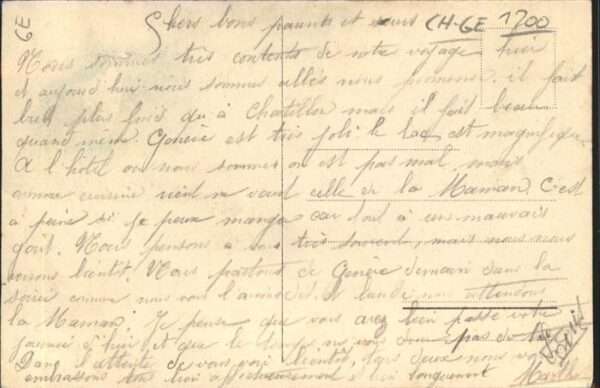 Chers bons parents et sœurs CH-GE 1700
GE
Nous sommes très contents de notre voyage hier
et aujourd hui nous sommes allés nous promener, il fait
bien plus frais qu à Chatillon mais il fait beau
quand même. Genève est très joli le lac est magnifique
A l hôtel ou nous sommes on est pas mal mais
comme cuisine rien ne vaut celle de la Maman. C'est
à peine si je peux manger car tout à un mauvais
goût. Nous pensons à vous très souvent, mais nous nous
verrons bientôt. Nous partons de Genève demain dans la
soirée comme nous vous l'avions dit et lundi nous attendons
la Maman. Je pense que vous avez bien passé votre
journée d'hier et que le temps ne vous dure pas de
Dans l'attente de vous voir bientôt, tous deux nous vous
embrassons tous bien affectueusement et bien longuement